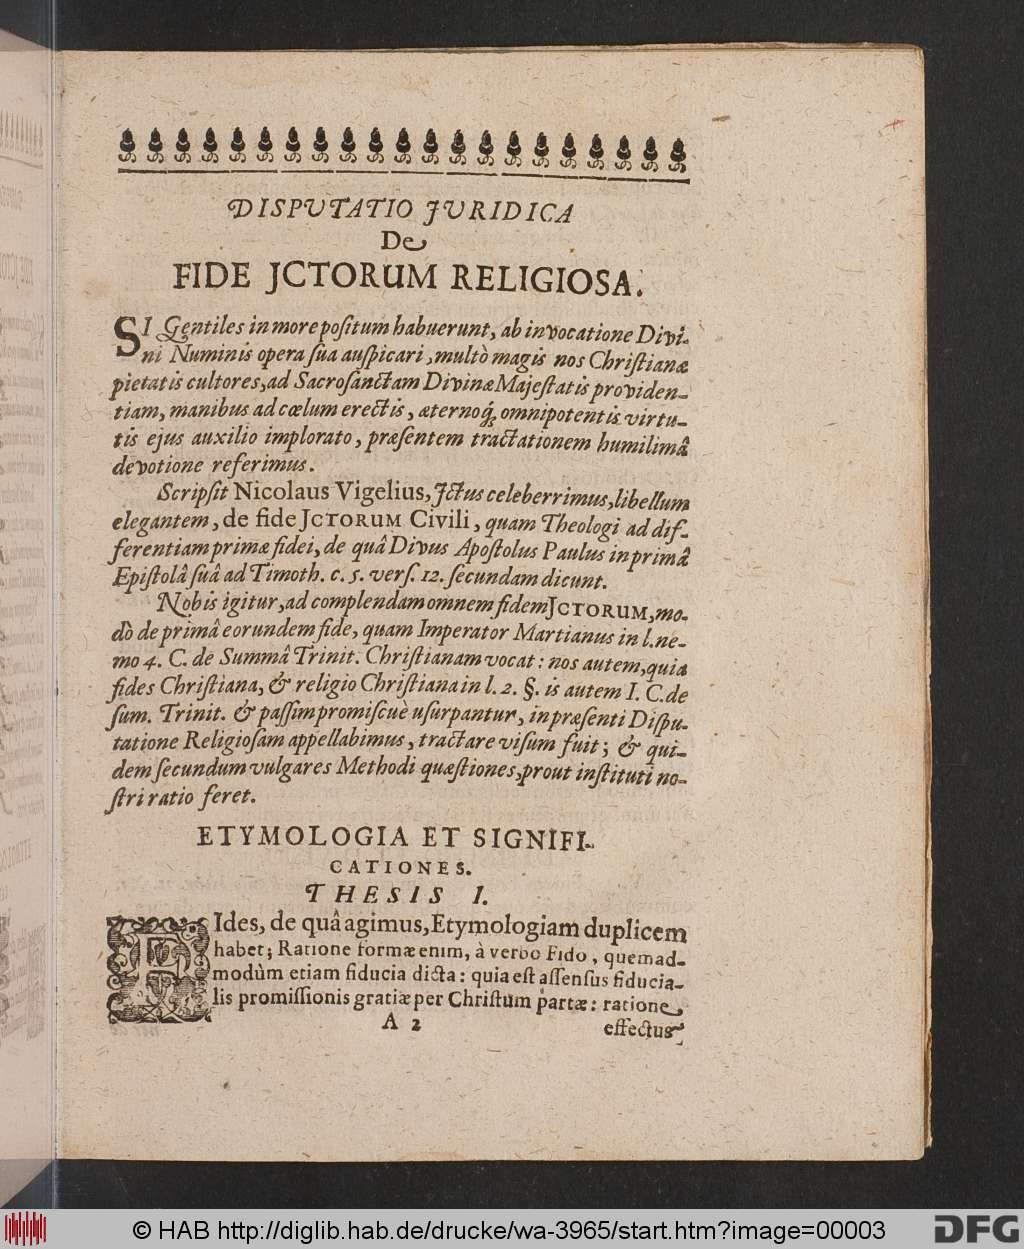 DISPVTATIO JVRIDICA
De
FIDE JCTORUM RELIGIOSA.
SI Gentiles in more positum habuerunt, ab invocatione Divi-
ni Numinis opera sua auspicari, multò magis nos Christianæ
pietatis cultores, ad Sacrosanctam Divinæ Majestatis providen-
tiam, manibus ad cœlum erectis, æternoq́; omnipotentis virtu-
tis ejus auxilio implorato, præsentem tractationem humilimâ
devotione referimus.
Scripsit Nicolaus Vigelius, Jctus celeberrimus, libellum
elegantem, de fide JCTORUM Civili, quam Theologi ad dif-
ferentiam primæ fidei, de quâ Divus Apostolus Paulus in primâ
Epistolâ suâ ad Timoth. c. 5. vers. 12. secundam dicunt.
Nobis igitur, ad complendam omnem fidem JCTORUM, mo-
dò de primâ eorundem fide, quam Imperator Martianus in l. ne-
mo 4. C. de Summâ Trinit. Christianam vocat: nos autem, quia
fides Christiana, & religio Christiana in l. 2. §. is autem I. C. de
sum. Trinit. & passim promiscuè usurpantur, in præsenti Dispu-
tatione Religiosam appellabimus, tractare visum fuit; & qui-
dem secundum vulgares Methodi quæstiones, prout instituti no-
stri ratio feret.
ETYMOLOGIA ET SIGNIFI-
CATIONES.
THESIS I.
FIdes, de quâ agimus, Etymologiam duplicem
habet; Ratione formæ enim, à verbo Fido, quemad-
modùm etiam fiducia dicta: quia est assensus fiducia-
lis promissionis gratiæ per Christum partæ: ratione
A 2
effectus
© HAB http://diglib.hab.de/drucke/wa-3965/start.htm?image=00003
DFG